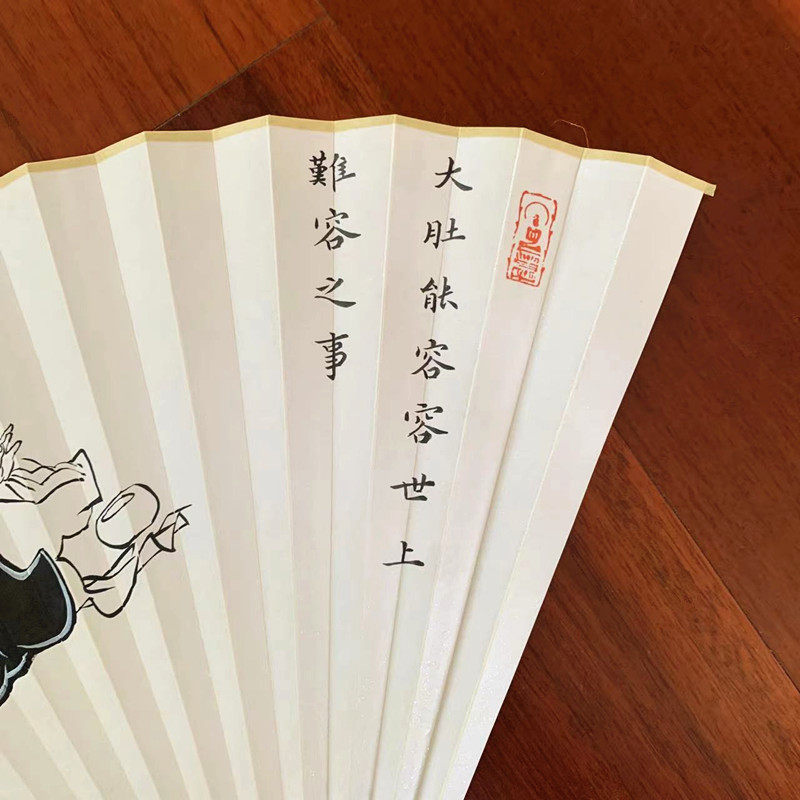 大肚能容容世上
難容之事